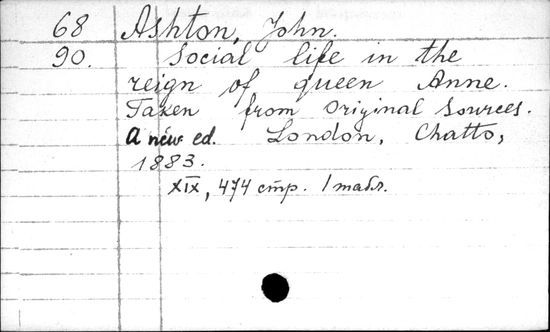 68 Ashton, John.
90. Social life in the
reign of queen Anne.
Taken from original sources.
A new ed. London, Chatto,
1883.
XIX, 474 стр. 1 табл.